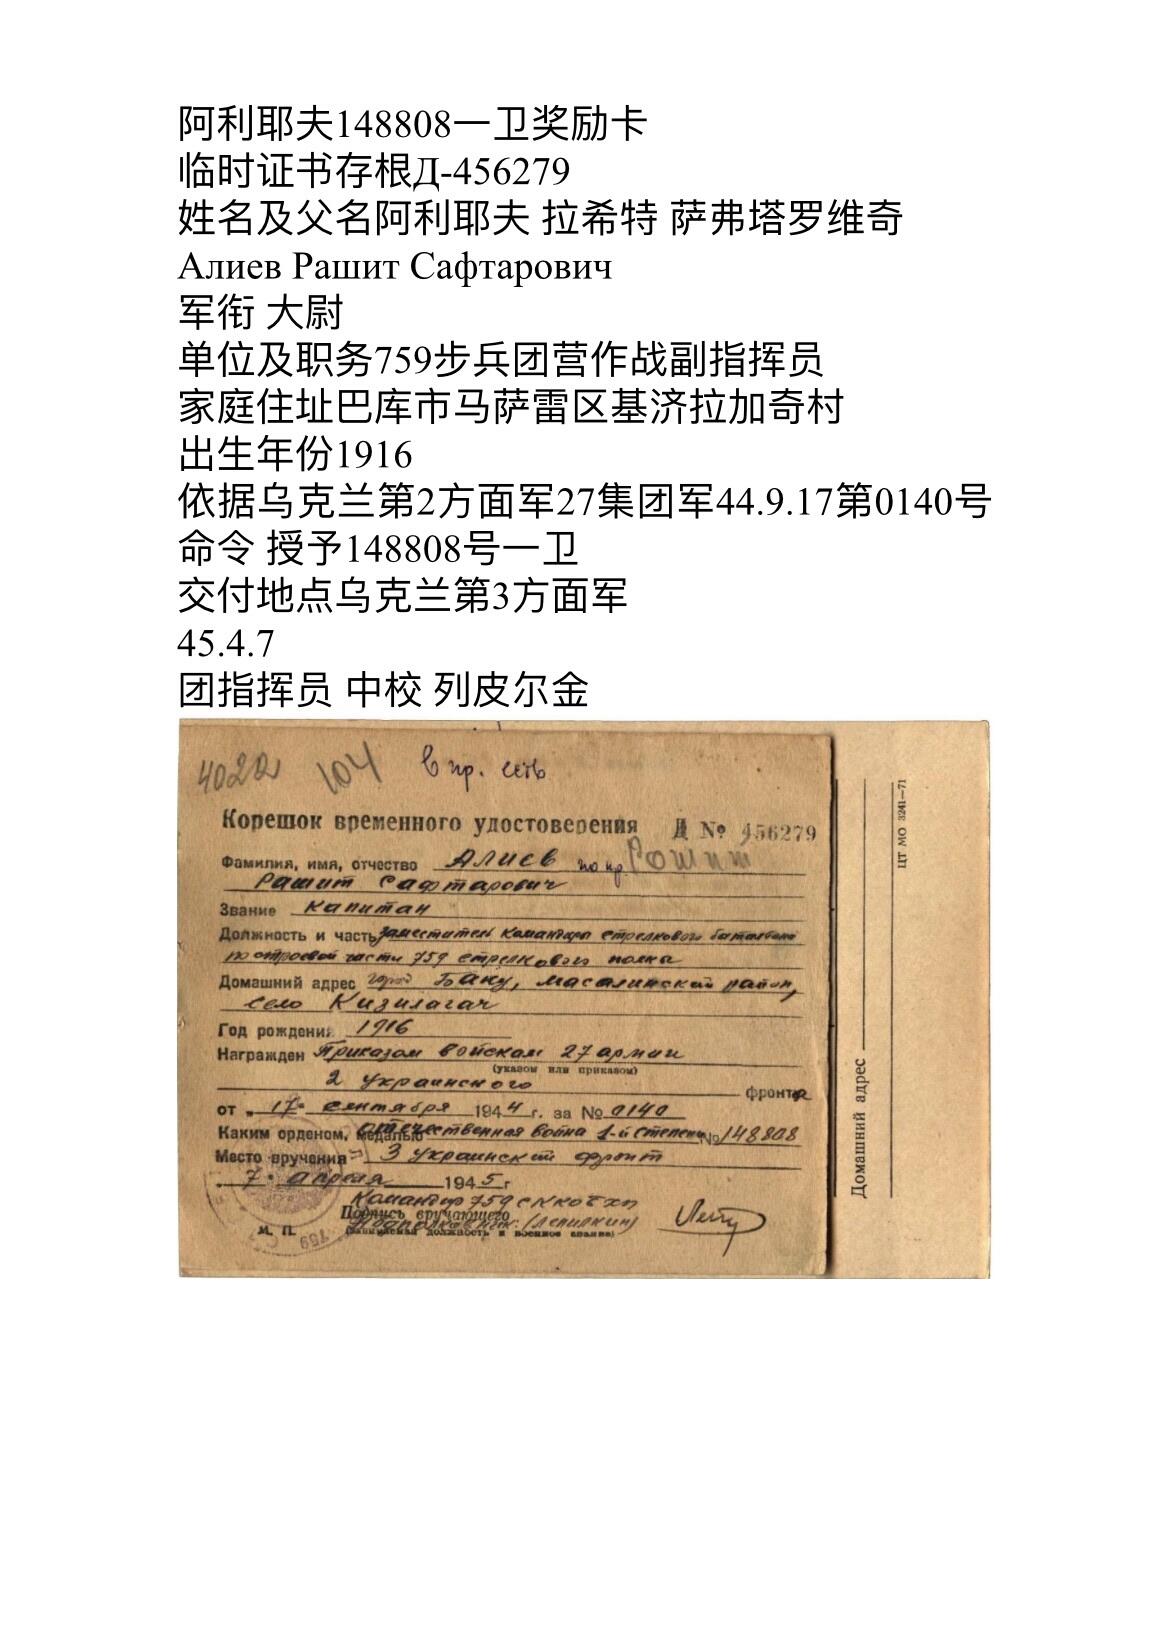 阿利耶夫148808一卫奖励卡
临时证书存根Д-456279
姓名及父名阿利耶夫 拉希特 萨弗塔罗维奇
Алиев Рашит Сафтарович
军衔 大尉
单位及职务759步兵团营作战副指挥员
家庭住址巴库市马萨雷区基济拉加奇村
出生年份1916
依据乌克兰第2方面军27集团军44.9.17第0140号
命令 授予148808号一卫
交付地点乌克兰第3方面军
45.4.7
团指挥员 中校 列皮尔金
104 в пр. есть
Корешок временного удостоверения Д № 456279
Фамилия, имя, отчество Алиев по пр. Рошит
Рашит Сафтарович
Звание Капитан
Должность и часть заместител командира стрелкового баталвона
по строевой части 759 стрелкового полка
Домашний адрес город Баку, масалинский район,
село Кизилагач
Год рождения 1916
Награжден Приказом войскам 27 армии
(указом или приказом)
2 украинского фронта
от „17" сентября 1944 г. за № 0140
Каким орденом, медалью отечественная война 1-й степени № 148808
Место вручения 3 украинский фронт
„7" апреля 1945 г
Командир 759
Подпись вручающего
Подполковник (Лепилкин)
М. П. (занимаемая должность и военное звание)
759
Домашний адрес
ЦТ МО 3241—71